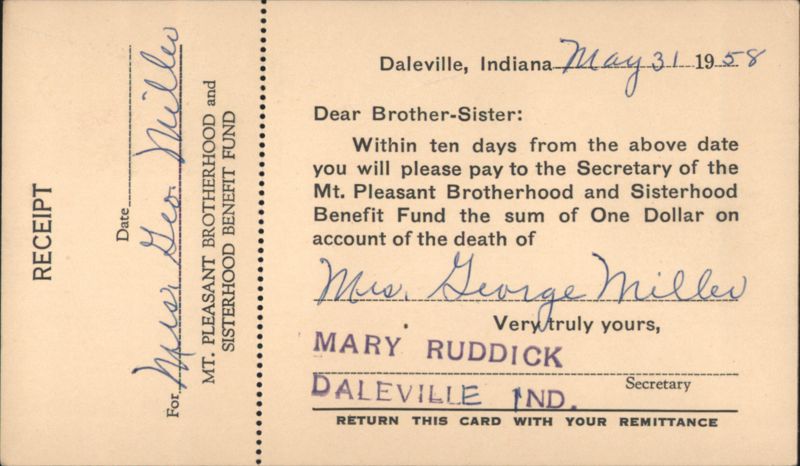 RECEIPT
Date
For Mrs. Geo. Miller
MT. PLEASANT BROTHERHOOD and
SISTERHOOD BENEFIT FUND
Daleville, Indiana May 31 1958
Dear Brother-Sister:
Within ten days from the above date
you will please pay to the Secretary of the
Mt. Pleasant Brotherhood and Sisterhood
Benefit Fund the sum of One Dollar on
account of the death of
Mrs. George Miller
Very truly yours,
MARY RUDDICK
Secretary
DALEVILLE IND.
RETURN THIS CARD WITH YOUR REMITTANCE